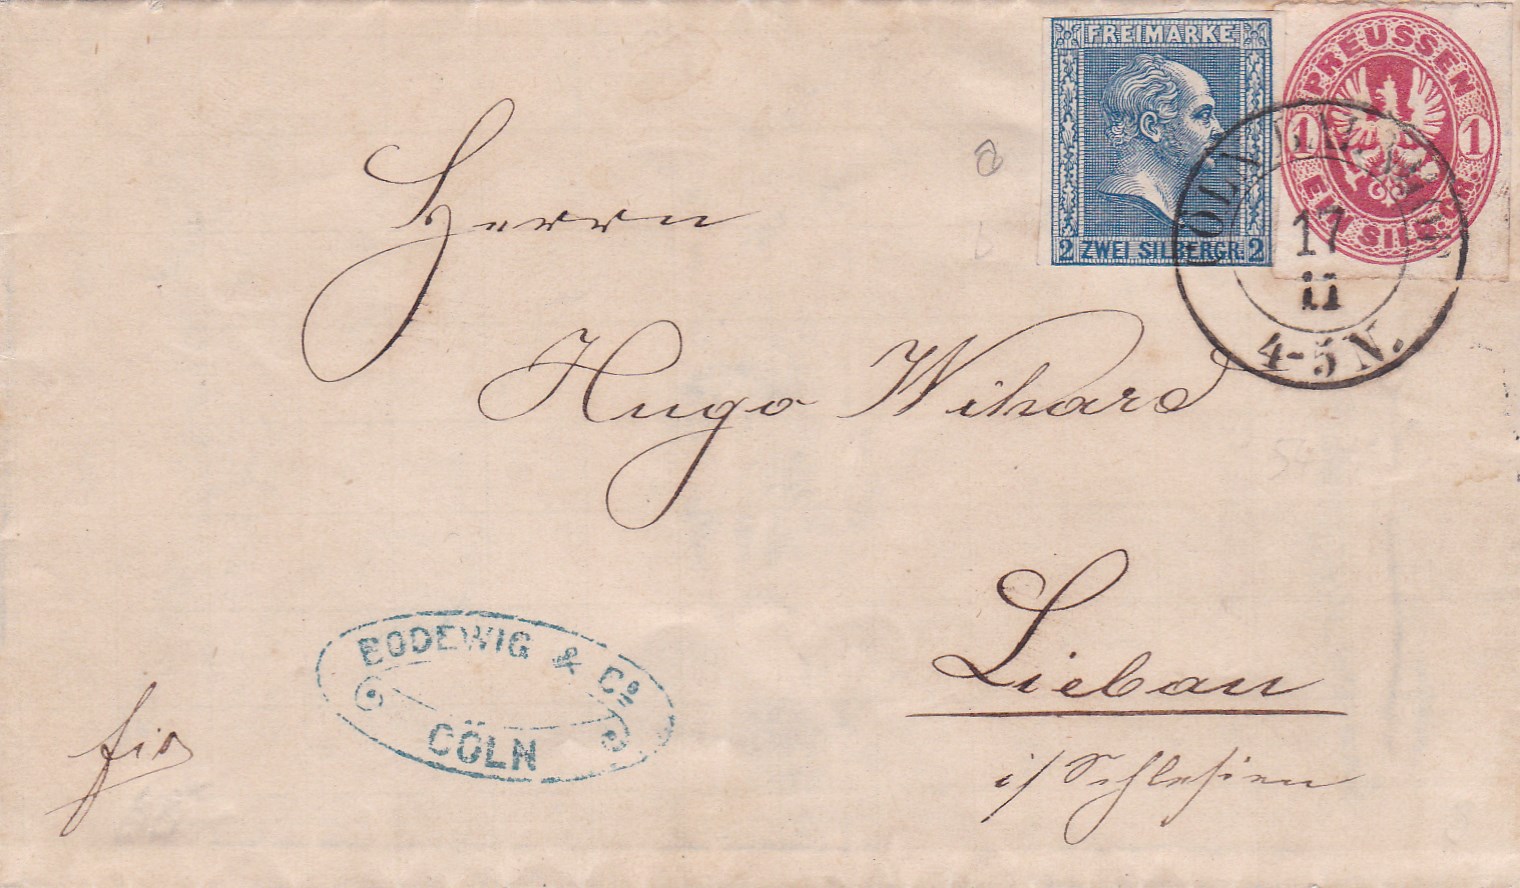 FREIMARKE
2 ZWEI SILBERGR. 2
PREUSSEN
1 1
EIN SILBERGR.
17
11
4-5 N.
Herrn
Hugo Wihard
Liebau
i/ Schlesien
BODEWIG & Co
CÖLN